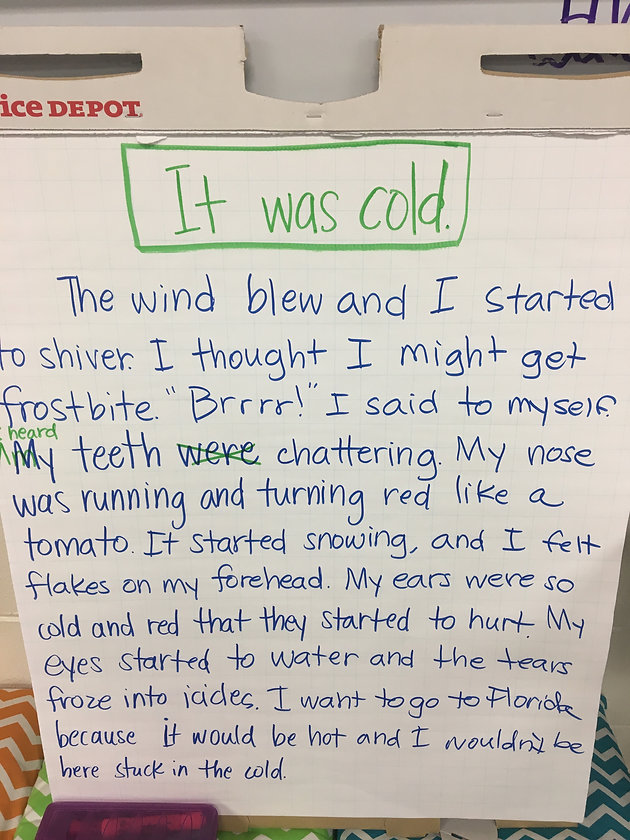 ice DEPOT
It was cold.
The wind blew and I started
to shiver. I thought I might get
frostbite. "Brrrr!" I said to myself.
heard
My teeth were chattering. My nose
was running and turning red like a
tomato. It started snowing, and I felt
flakes on my forehead. My ears were so
cold and red that they started to hurt. My
eyes started to water and the tears
froze into icicles. I want to go to Florida
because it would be hot and I wouldn't be
here stuck in the cold.